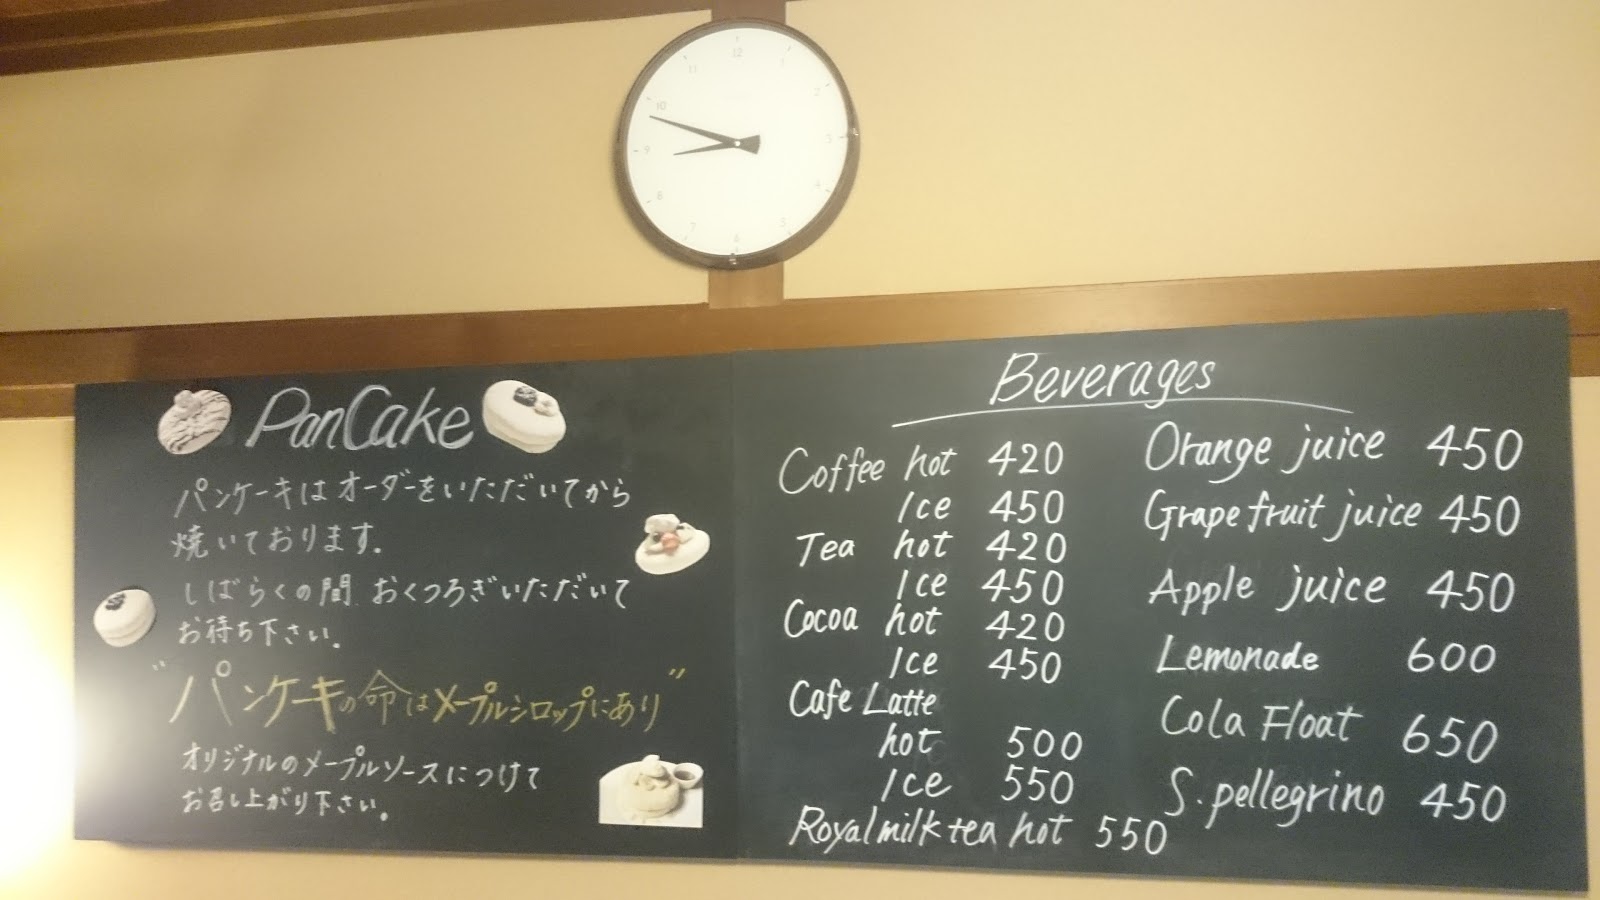 12
1
2
3
4
5
6
7
8
9
10
11
PanCake
パンケーキはオーダーをいただいてから
焼いております。
しばらくの間、おくつろぎいただいて
お待ち下さい。
"パンケーキの命はメープルシロップにあり"
オリジナルのメープルソースにつけて
お召し上がり下さい。
Beverages
Coffee hot 420
Ice 450
Tea hot 420
Ice 450
Cocoa hot 420
Ice 450
Cafe Latte
hot 500
Ice 550
Royal milk tea hot 550
Orange juice 450
Grape fruit juice 450
Apple juice 450
Lemonade 600
Cola Float 650
S.pellegrino 450